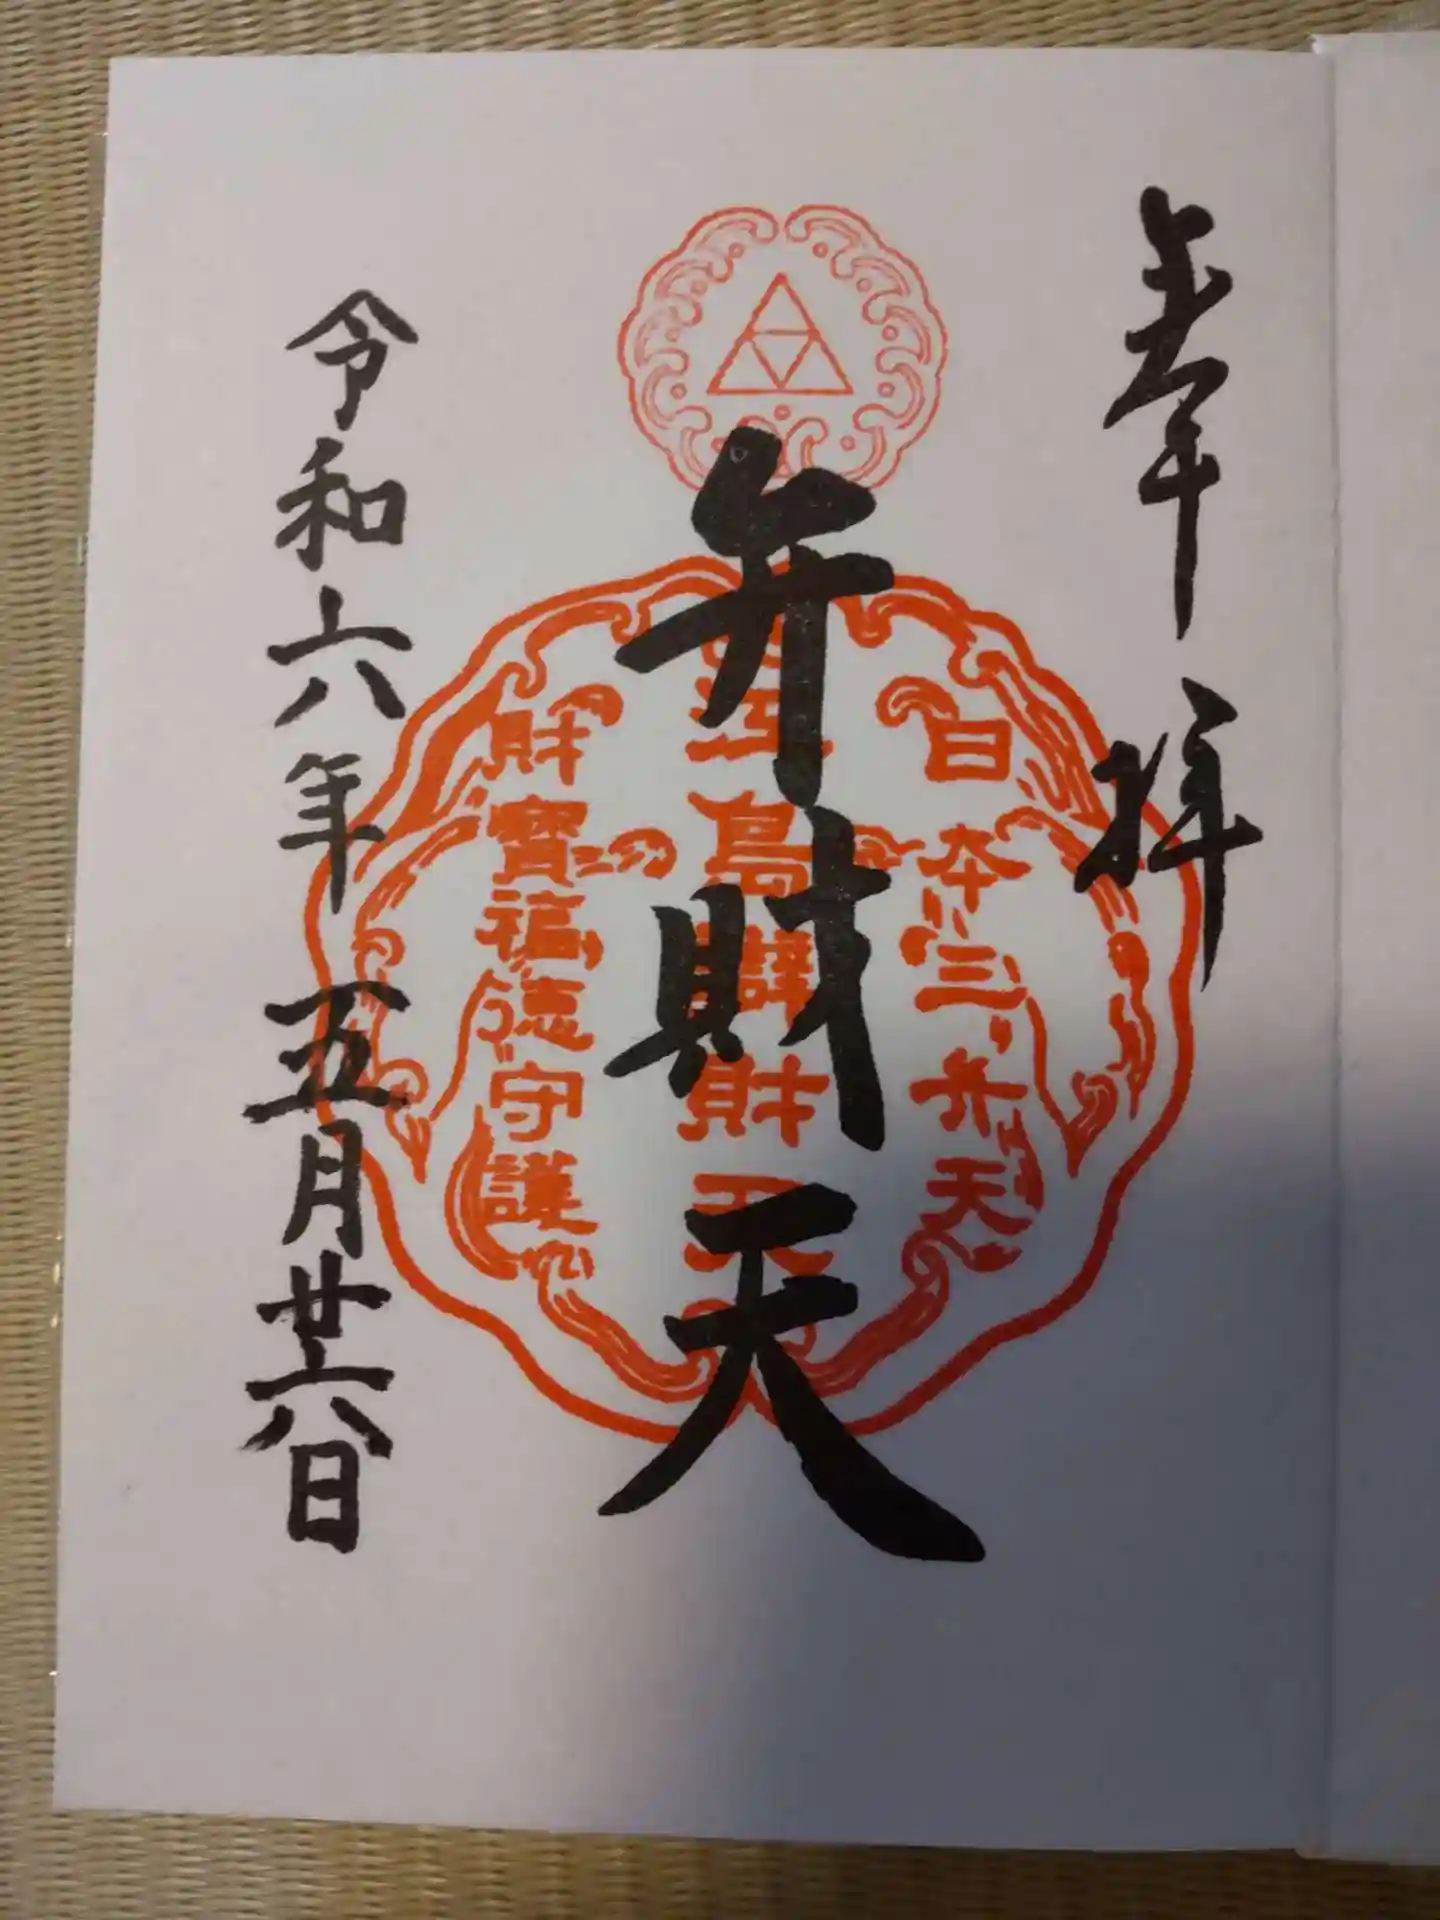 奉拝
弁財天
令和六年五月廿六日
日本三弁天
江島辯財天
財寶福徳守護